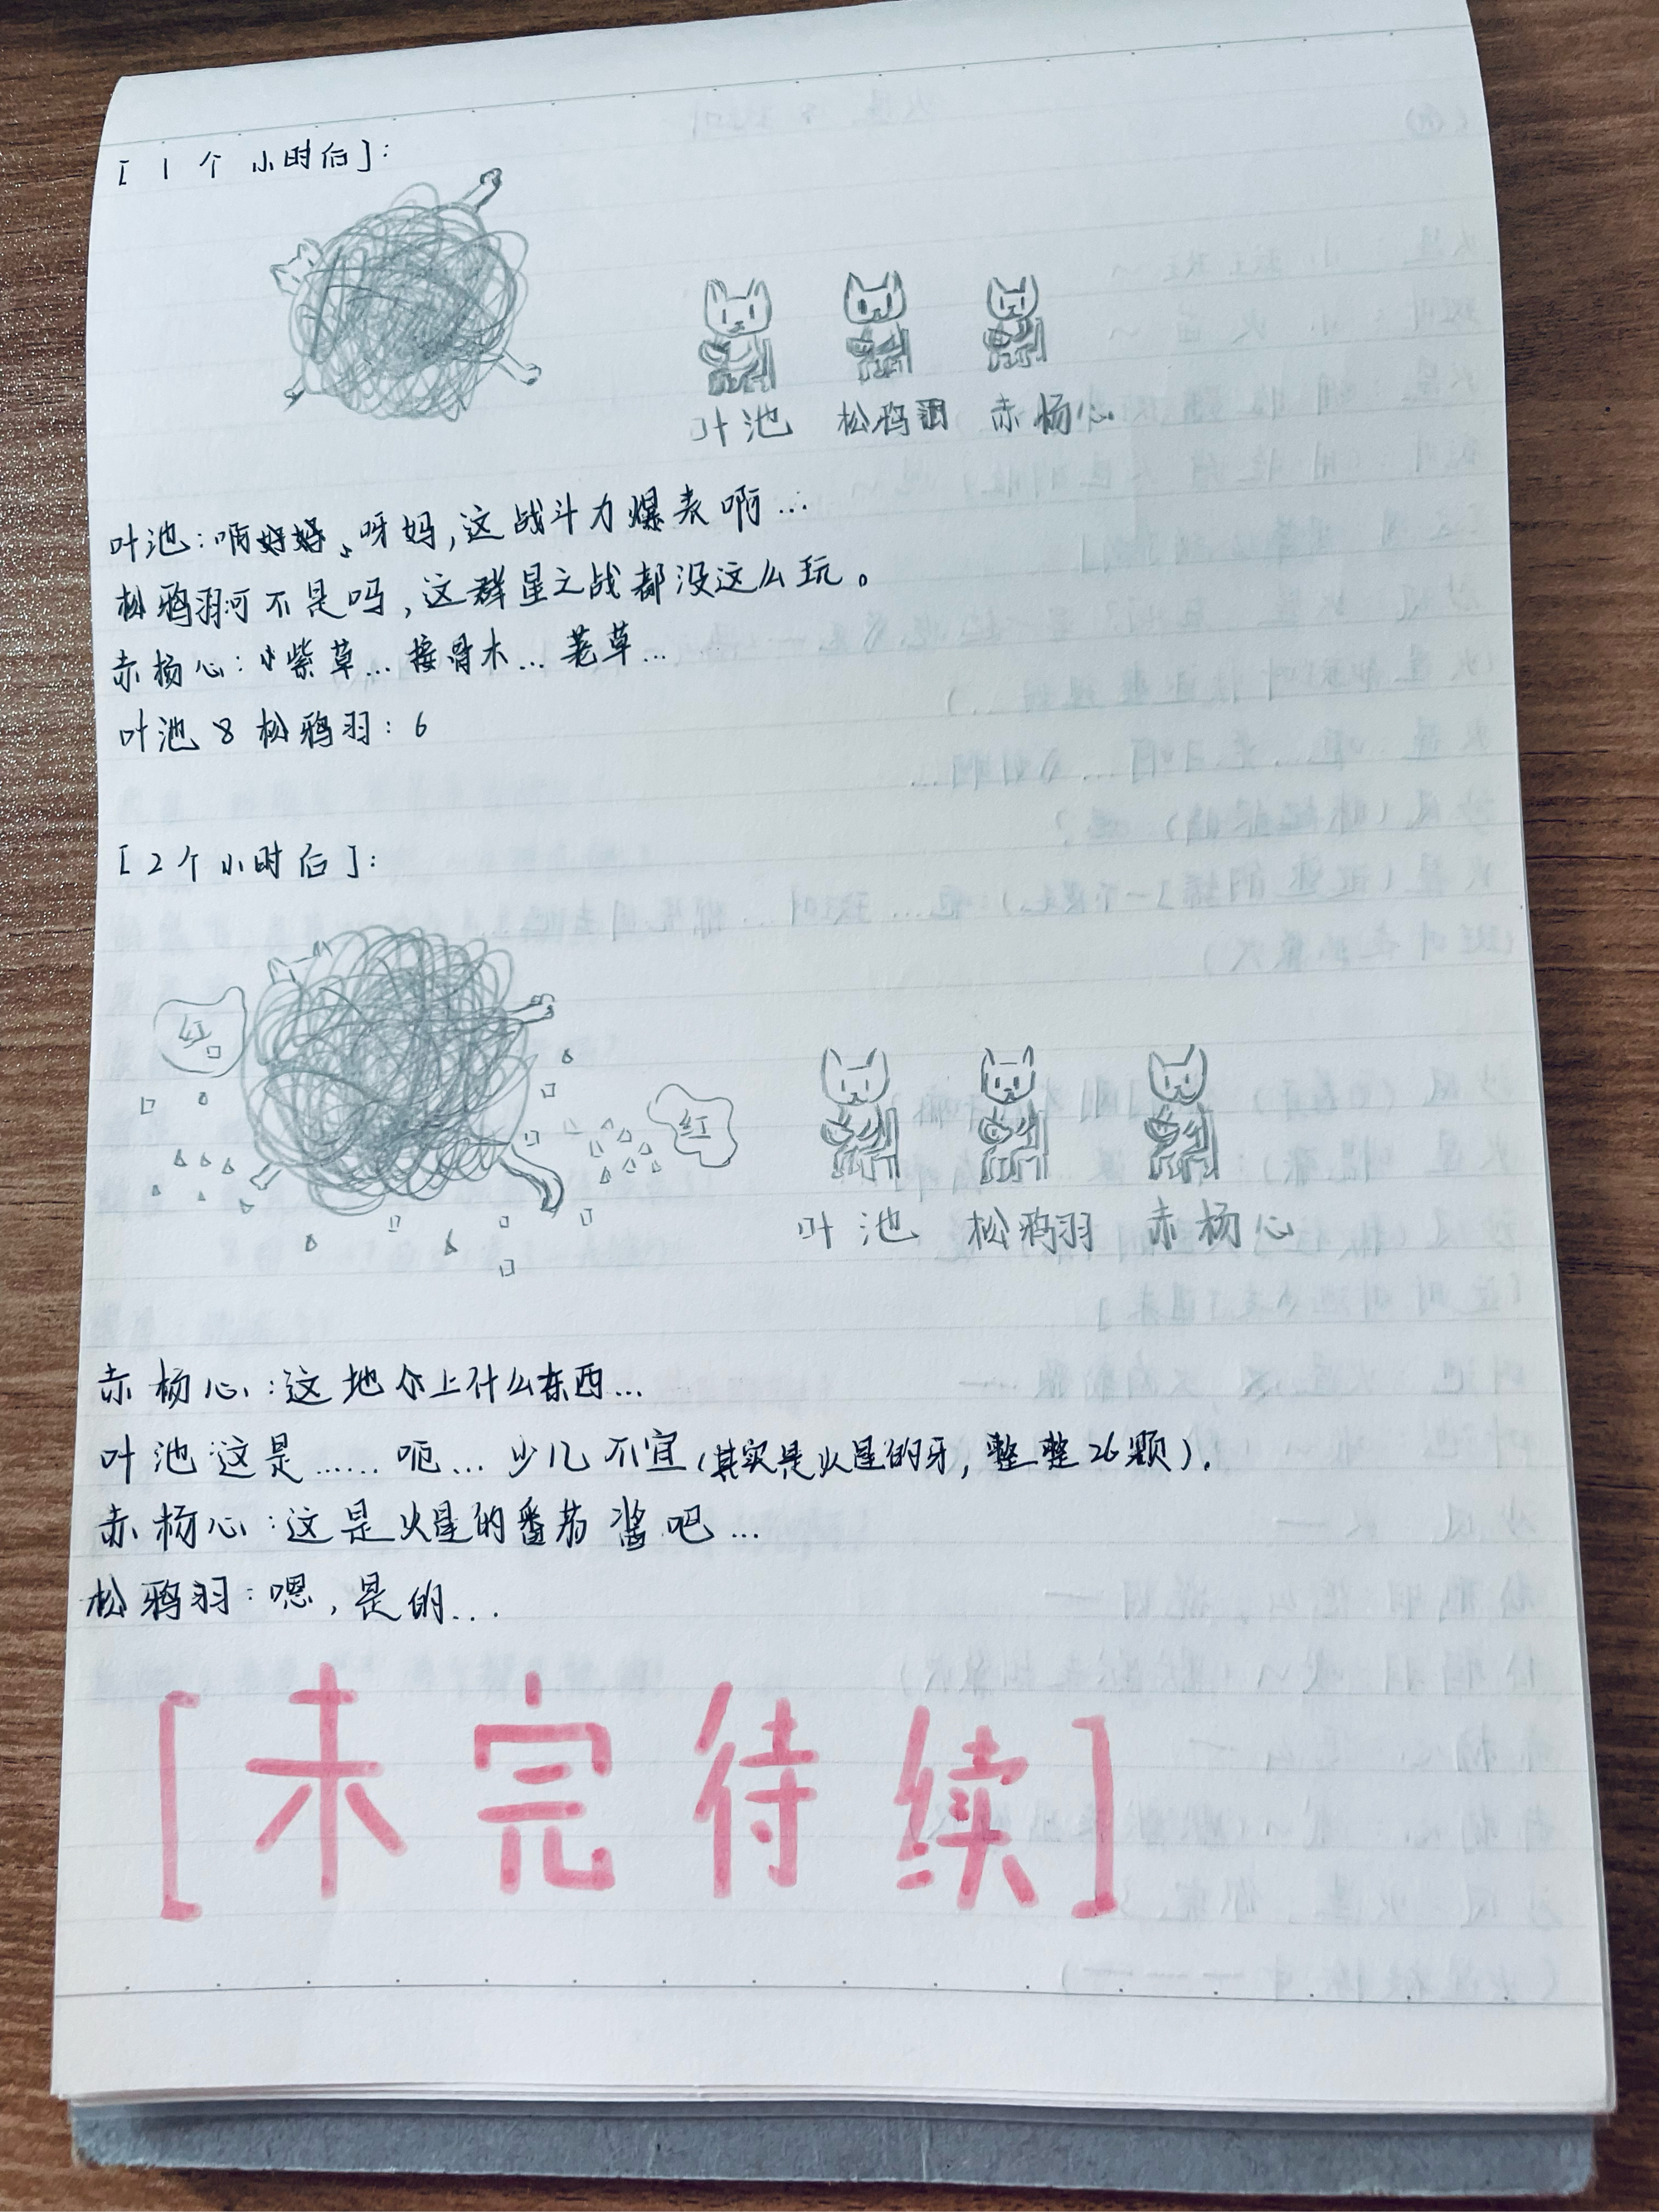 [1个小时后]:
叶池 松鸦羽 赤杨心
叶池:呀妈,这战斗力爆表啊...
松鸦羽:可不是吗,这群星之战都没这么玩。
赤杨心:小紫草...接骨木...蓍草...
叶池&松鸦羽:6
[2个小时后]:
红
红
叶池 松鸦羽 赤杨心
赤杨心:这地上什么东西...
叶池:这是......呃...少儿不宜(其实是火星的牙,整整26颗).
赤杨心:这是火星的番茄酱吧...
松鸦羽:嗯,是的...
[未完待续]